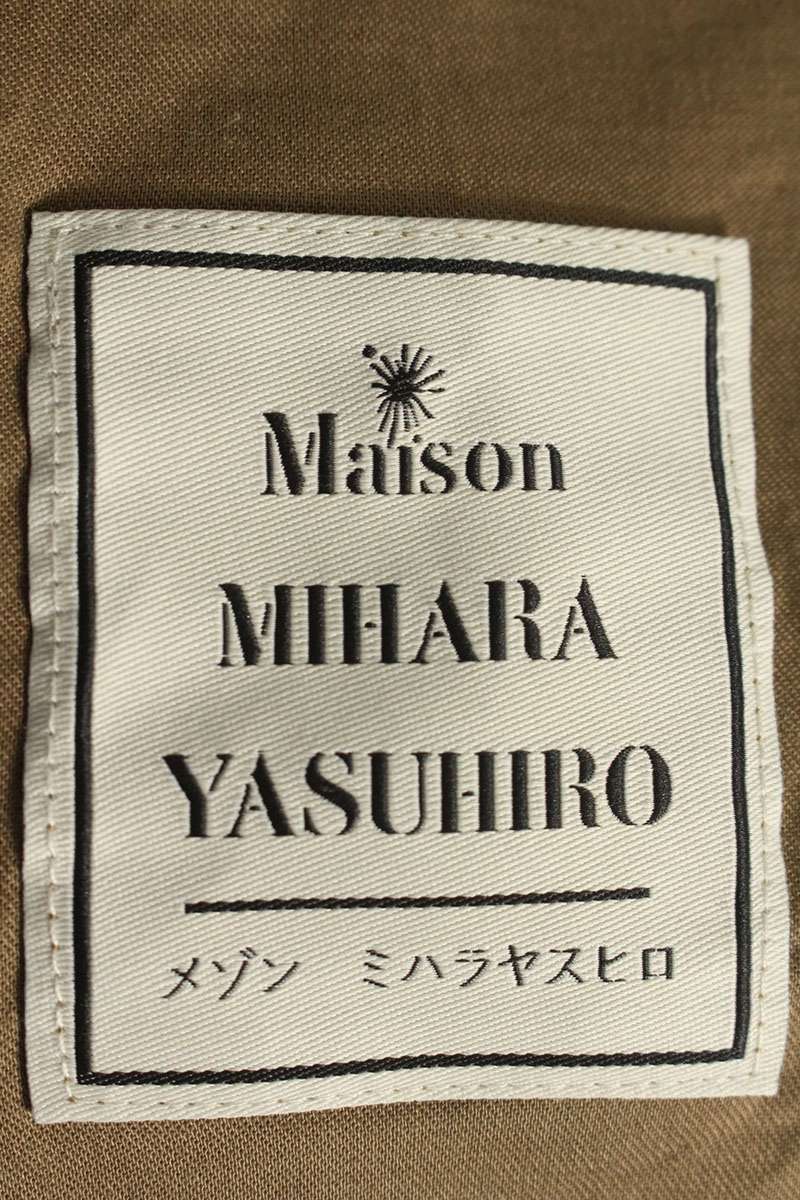 Maison
MIHARA
YASUHIRO
メゾン　ミハラヤスヒロ